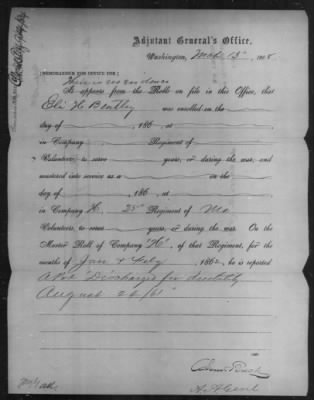 Adjutant General's Office,
Washington, March 13", 1868
[MEMORANDUM FOR OFFICE USE.]
There is no evidence
It appears from the Rolls on file in this Office, that
Eli H. Bentley was enrolled on the
day of , 186 , at
in Company , Regiment of
Volunteers, to serve years, or during the war, and
mustered into service as a on the
day of , 186 , at ,
in Company H. 25" Regiment of Mo
Volunteers, to serve years, or during the war. On the
Muster Roll of Company "H", of that Regiment, for the
months of Jany & Feby , 1862, he is reported
"Discharged for disability
August 26/61"
A A Genl